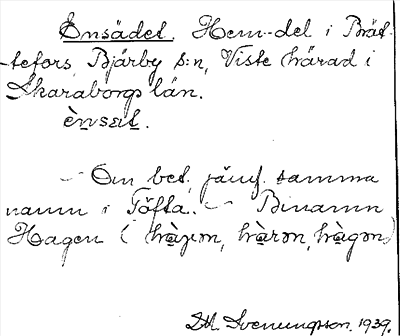 Ensädet. Hem-del i Brät-
tefors, Bjärby s:n, Viste härad i
Skaraborgs län.
ènsæt.
— Om bet. jämf. samma
namn i Töfta. — Binamn
Hagen (
D.M. Svenungsson. 1939.